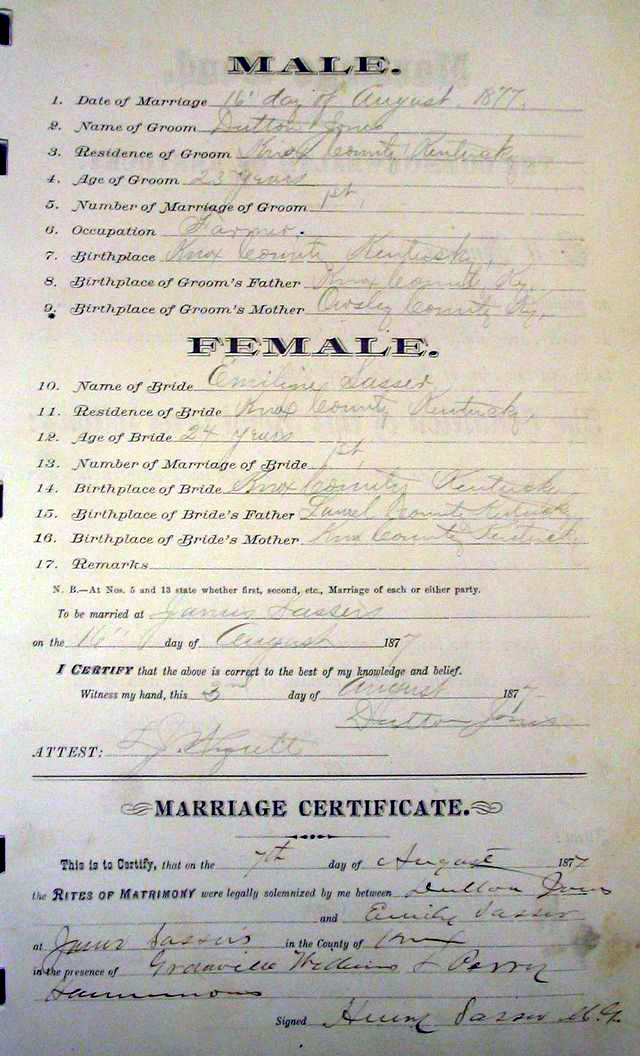 MALE.
1. Date of Marriage 16" day of August. 1877.
2. Name of Groom Dutton Jones
3. Residence of Groom Knox County Kentucky
4. Age of Groom 23 years
5. Number of Marriage of Groom 1st,
6. Occupation Farmer.
7. Birthplace Knox County Kentucky,
8. Birthplace of Groom's Father Knox County Ky.
9. Birthplace of Groom's Mother Owsley County Ky.
FEMALE.
10. Name of Bride Emiline Sasser,
11. Residence of Bride Knox County Kentucky.
12. Age of Bride 24 years
13. Number of Marriage of Bride 1st,
14. Birthplace of Bride Knox County Kentucky
15. Birthplace of Bride's Father Laurel County Kentucky
16. Birthplace of Bride's Mother Knox County Kentucky
17. Remarks
N. B.—At Nos. 5 and 13 state whether first, second, etc., Marriage of each or either party.
To be married at James Sassers
on the 16" day of August 1877
I CERTIFY that the above is correct to the best of my knowledge and belief.
Witness my hand, this 3rd day of August 1877
Dutton Jones
ATTEST:
MARRIAGE CERTIFICATE.
This is to Certify, that on the 7th day of August 1877
the RITES OF MATRIMONY were legally solemnized by me between Dutton Jones
and Emily Sasser
at James Sassers in the County of Knox
in the presence of Granville Williams & Perry
Hammons
Signed Henry Sasser M.G.